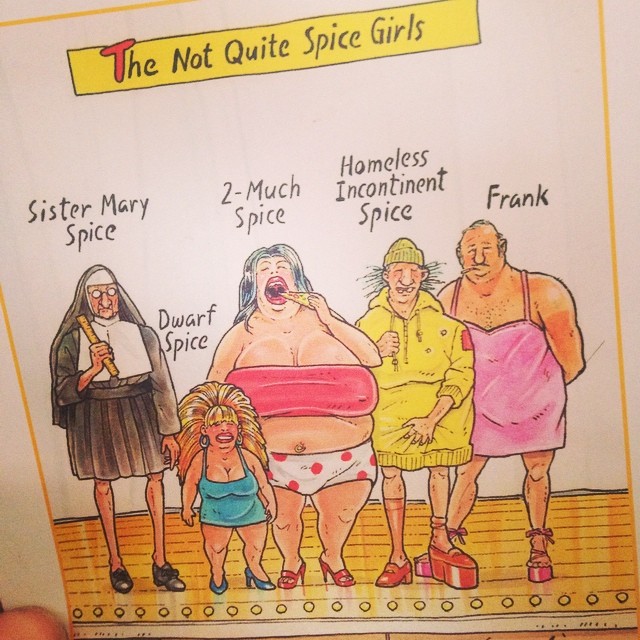 The Not Quite Spice Girls
Sister Mary
Spice
Dwarf
Spice
2-Much
Spice
Homeless
Incontinent
Spice
Frank